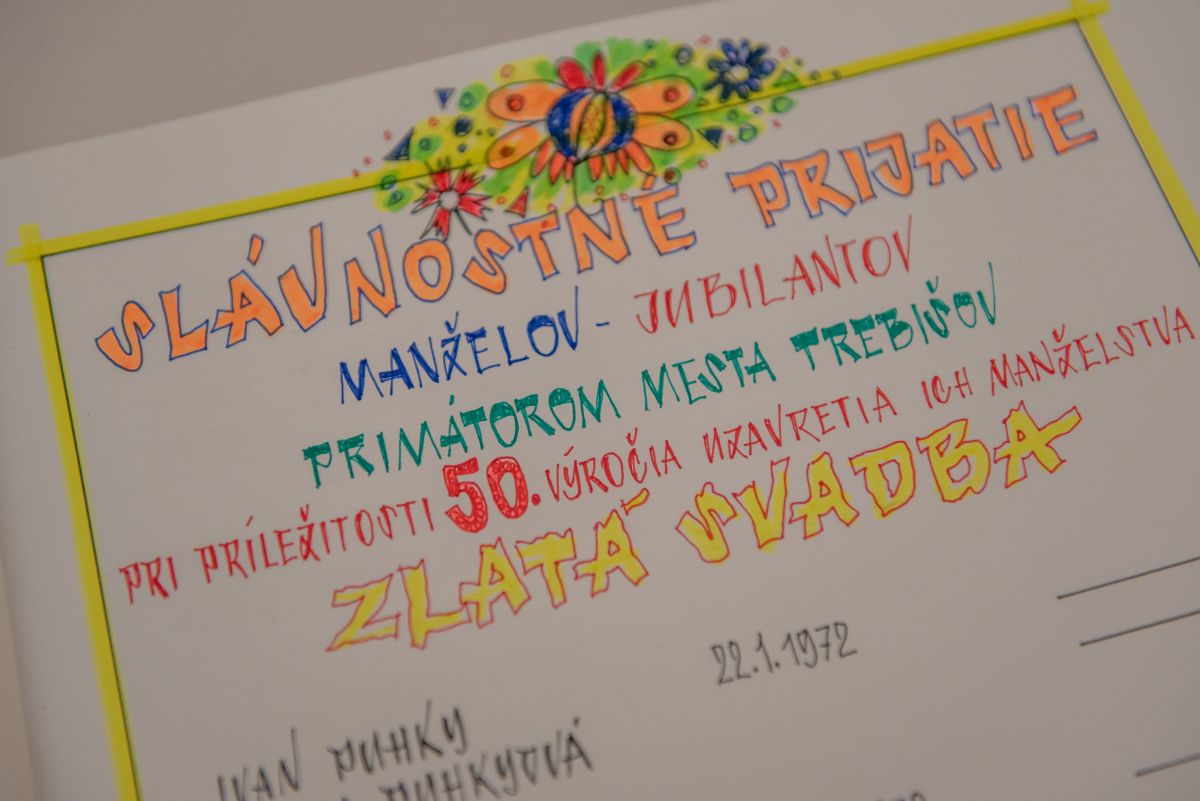 SLÁVNOSTNÉ PRIJATIE
MANŽELOV - JUBILANTOV
PRIMÁTOROM MESTA TREBIŠOV
PRI PRÍLEŽITOSTI 50. VÝROČIA UZAVRETIA ICH MANŽELSTVA
ZLATÁ SVADBA
22.1.1972
IVAN PUHKY
PUHKYOVÁ